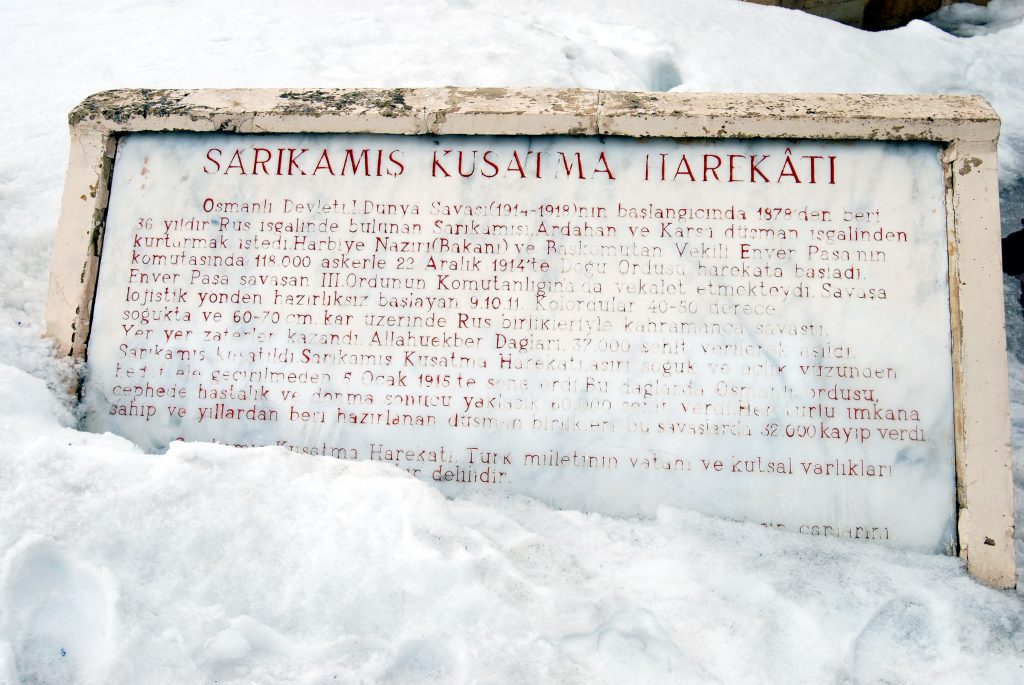 SARIKAMIŞ KUŞATMA HAREKÂTI
Osmanlı Devleti,I.Dünya Savaşı(1914-1918)'nın başlangıcında 1878'den beri
36 yıldır Rus işgalinde bulunan Sarıkamış,Ardahan ve Kars'ı düşman işgalinden
kurtarmak istedi.Harbiye Nazırı(Bakanı) ve Başkomutan Vekili Enver Paşa'nın
komutasında 118.000 askerle 22 Aralık 1914'te Doğu Ordusu harekata başladı.
Enver Paşa savaşan III.Ordunun Komutanlığına'da vekalet etmekteydi.Savaşa
lojistik yönden hazırlıksız başlayan 9.10.11. Kolordular 40-50 derece
soğukta ve 60-70 cm. kar üzerinde Rus birlikleriyle kahramanca savaştı.
Yer yer zaferler kazandı.Allahuekber Dağları, 37.000 şehit verilerek aşıldı.
Sarıkamış kuşatıldı.Sarıkamış Kuşatma Harekatı,aşırı soğuk ve açlık yüzünden
ele geçirilmeden 5 Ocak 1915'te sona erdi.Bu dağlarda Osmanlı ordusu,
cephede hastalık ve donma sonucu yaklaşık 60.000 şehit verdi.Her türlü imkana
sahip ve yıllardan beri hazırlanan düşman birlikleri bu savaşlarda 32.000 kayıp verdi.
Kuşatma Harekatı, Türk milletinin vatanı ve kutsal varlıkları
delilidir.
canlarını